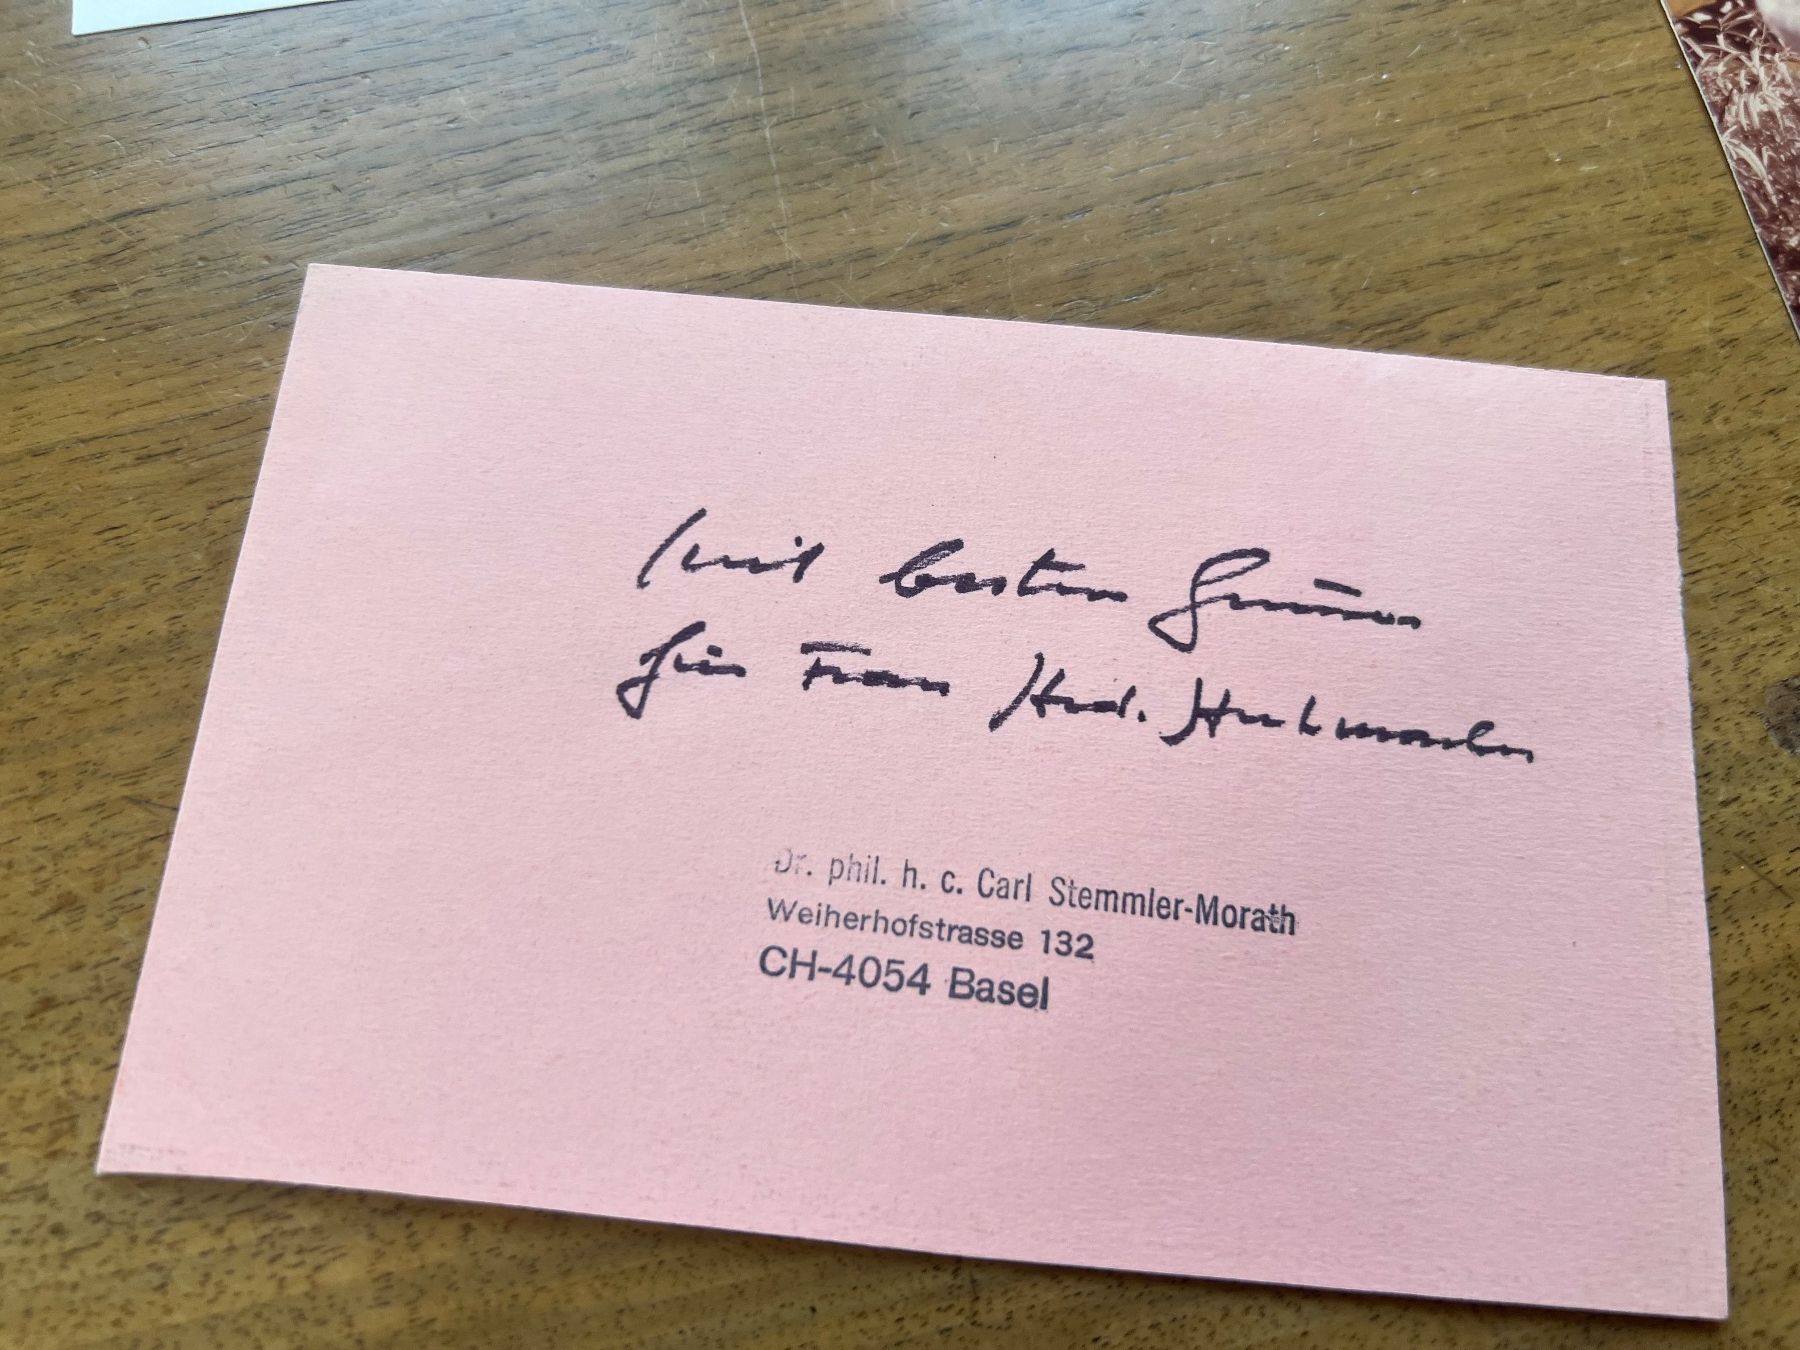 Mit besten Grüssen
für Frau
Dr. phil. h. c. Carl Stemmler-Morath
Weiherhofstrasse 132
CH-4054 Basel